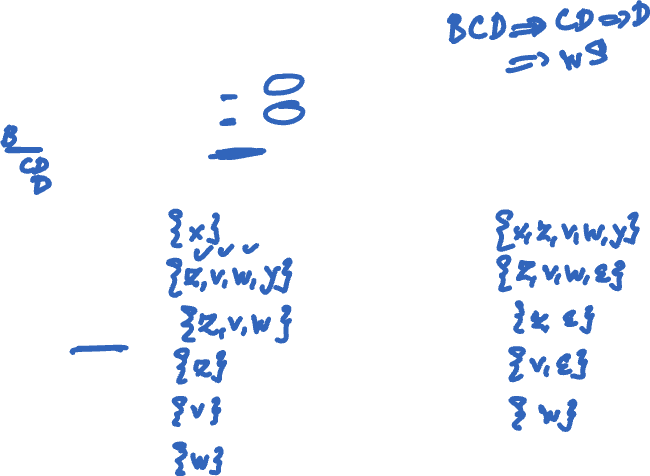 BCD ⇒ CD ⇒ D
⇒ w
= 0
= 0
B
CD
D
{x}
{z, v, w, y}
{z, v, w}
{z}
{v}
{w}
{x, z, v, w, y}
{z, v, w, ε}
{z, ε}
{v, ε}
{w}